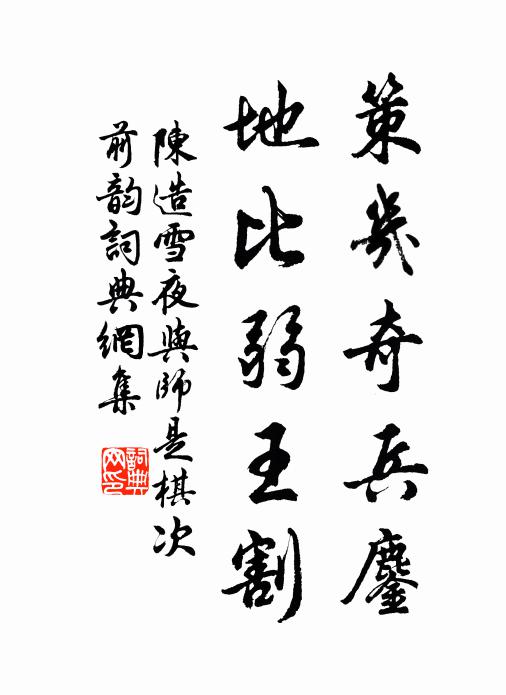 策幾奇兵鏖
地比弱王割
陳造雪夜與師是棋次
前韵詞典網集
詞典网印